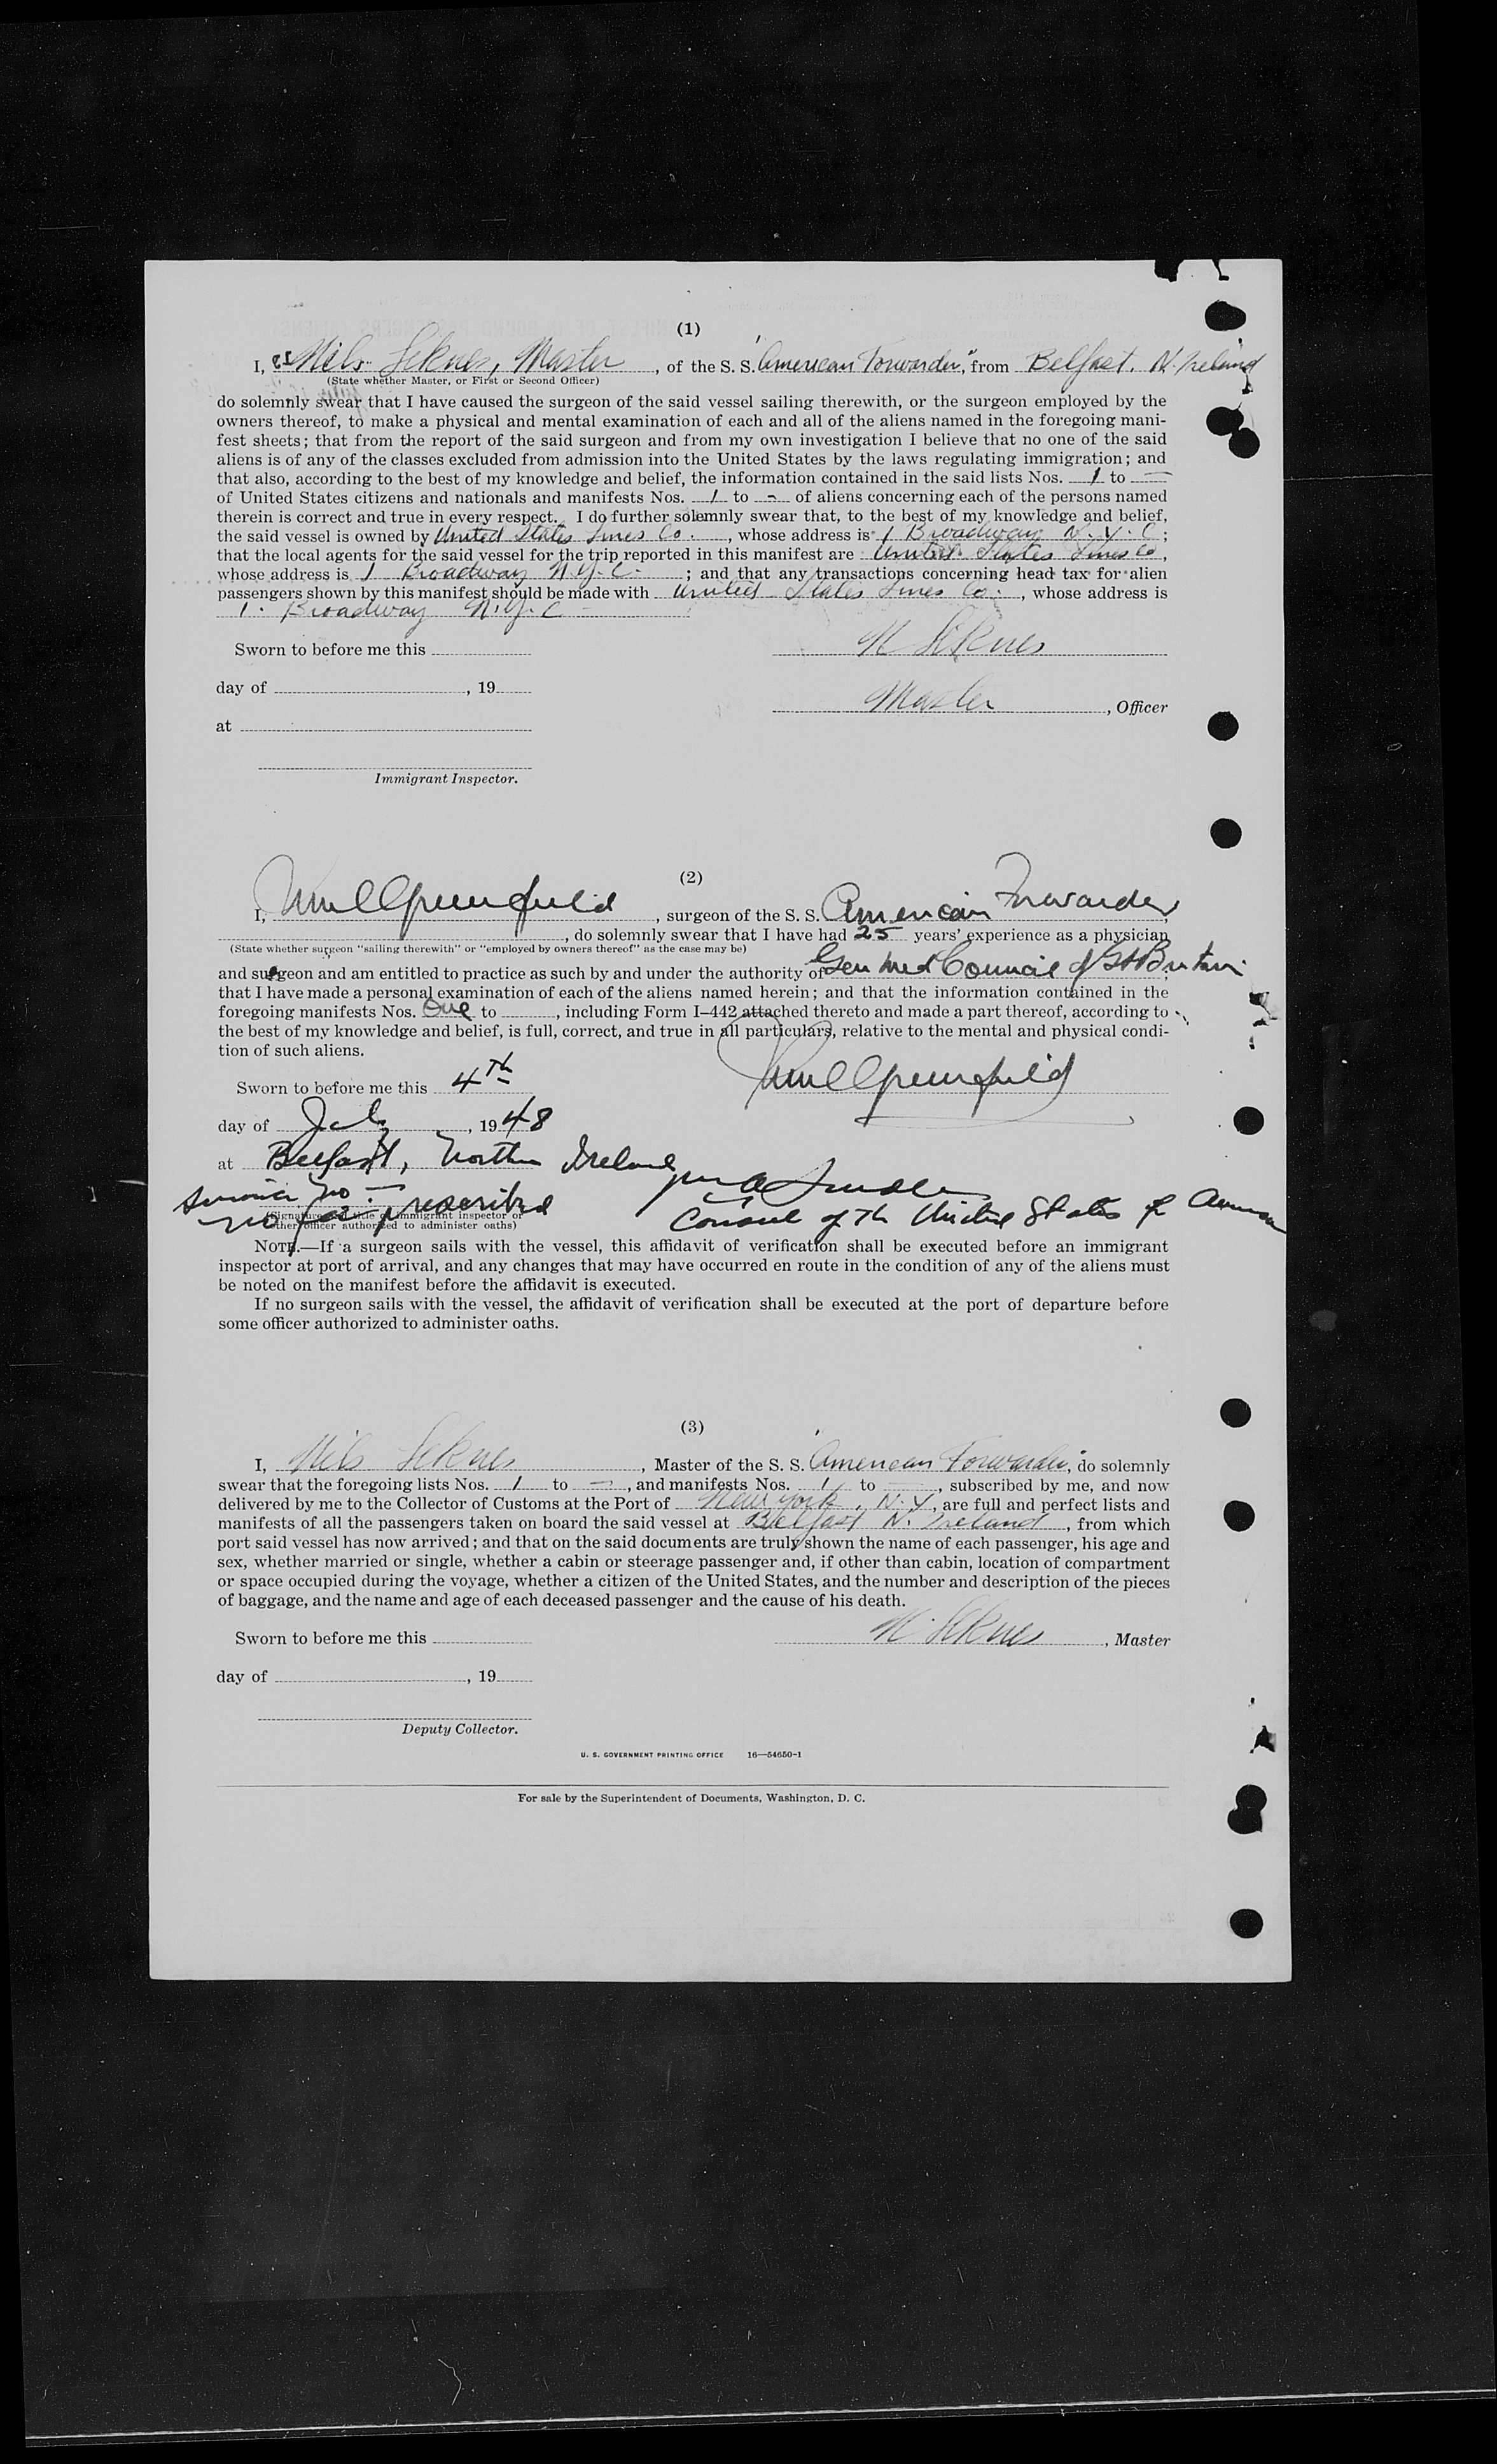 (1)
I, Nils Seknes, Master, of the S. S. "American Forwarder", from Belfast, N. Ireland
(State whether Master, or First or Second Officer)
do solemnly swear that I have caused the surgeon of the said vessel sailing therewith, or the surgeon employed by the
owners thereof, to make a physical and mental examination of each and all of the aliens named in the foregoing mani-
fest sheets; that from the report of the said surgeon and from my own investigation I believe that no one of the said
aliens is of any of the classes excluded from admission into the United States by the laws regulating immigration; and
that also, according to the best of my knowledge and belief, the information contained in the said lists Nos. 1 to —
of United States citizens and nationals and manifests Nos. 1 to - of aliens concerning each of the persons named
therein is correct and true in every respect. I do further solemnly swear that, to the best of my knowledge and belief,
the said vessel is owned by United States Lines Co., whose address is 1 Broadway N. Y. C;
that the local agents for the said vessel for the trip reported in this manifest are United States Lines Co,
whose address is 1 Broadway N.Y.C.; and that any transactions concerning head tax for alien
passengers shown by this manifest should be made with United States Lines Co., whose address is
1. Broadway N.Y.C
Sworn to before me this
N Seknes
day of , 19
Master, Officer
at
Immigrant Inspector.
(2)
I, Greenfield, surgeon of the S. S. American Forwarder,
, do solemnly swear that I have had 25 years' experience as a physician
(State whether surgeon "sailing therewith" or "employed by owners thereof" as the case may be)
and surgeon and am entitled to practice as such by and under the authority of Gen Med Council of Gt Britain
that I have made a personal examination of each of the aliens named herein; and that the information contained in the
foregoing manifests Nos. One to , including Form I–442 attached thereto and made a part thereof, according to
the best of my knowledge and belief, is full, correct, and true in all particulars, relative to the mental and physical condi-
tion of such aliens.
Sworn to before me this 4th
Greenfield
day of July, 1948
at Belfast, Northern Ireland
Service No. —
no fee prescribed
Consul of the United States of America
(Signature and title of immigrant inspector or
other officer authorized to administer oaths)
NOTE.—If a surgeon sails with the vessel, this affidavit of verification shall be executed before an immigrant
inspector at port of arrival, and any changes that may have occurred en route in the condition of any of the aliens must
be noted on the manifest before the affidavit is executed.
If no surgeon sails with the vessel, the affidavit of verification shall be executed at the port of departure before
some officer authorized to administer oaths.
(3)
I, Nils Seknes, Master of the S. S. American Forwarder, do solemnly
swear that the foregoing lists Nos. 1 to —, and manifests Nos. 1 to , subscribed by me, and now
delivered by me to the Collector of Customs at the Port of New York, N.Y, are full and perfect lists and
manifests of all the passengers taken on board the said vessel at Belfast N. Ireland, from which
port said vessel has now arrived; and that on the said documents are truly shown the name of each passenger, his age and
sex, whether married or single, whether a cabin or steerage passenger and, if other than cabin, location of compartment
or space occupied during the voyage, whether a citizen of the United States, and the number and description of the pieces
of baggage, and the name and age of each deceased passenger and the cause of his death.
Sworn to before me this
N. Seknes, Master
day of , 19
Deputy Collector.
U. S. GOVERNMENT PRINTING OFFICE 16—54650-1
For sale by the Superintendent of Documents, Washington, D. C.